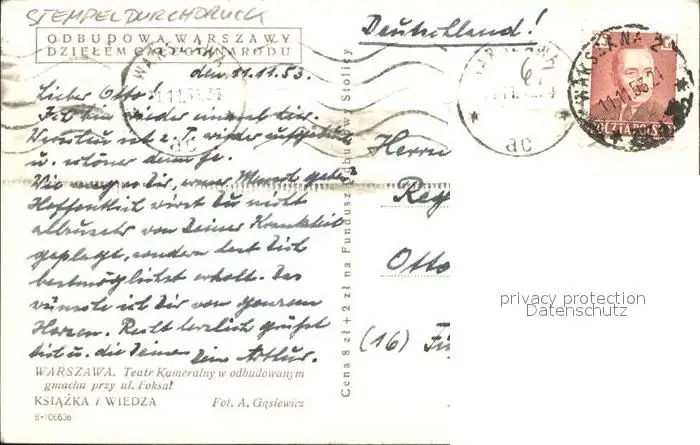 STEMPELDURCHDRUCK
ODBUDOWA WARSZAWY
DZIEŁEM CAŁEGO NARODU
Deutschland!
den 11.11.53.
Lieber Otto!
Ich bin wieder einmal hier.
Warschau ist z. T. wieder aufgebaut
u. schöner denn je.
Wie mag es Dir, armer Mensch gehen?
Hoffentlich wirst Du nicht
allzusehr von Deiner Krankheit
geplagt, sondern hast Dich
bestmöglichst erholt. Das
wünsche ich Dir von ganzem
Herzen. Recht herzlich grüßt
Dich u. die Deinen Dein Arthur.
WARSZAWA. Teatr Kameralny w odbudowanym
gmachu przy ul. Foksal
KSIĄŻKA i WIEDZA Fot. A. Gąsiewicz
B-106636
Cena 8 zł + 2 zł na Fundusz Odbudowy Stolicy
Herrn
Reg
Otto
(16)
WARSZAWA
11.11.53.24
ac
WARSZAWA 2
11.11.53.24
POCZTA POLSKA
privacy protection
Datenschutz